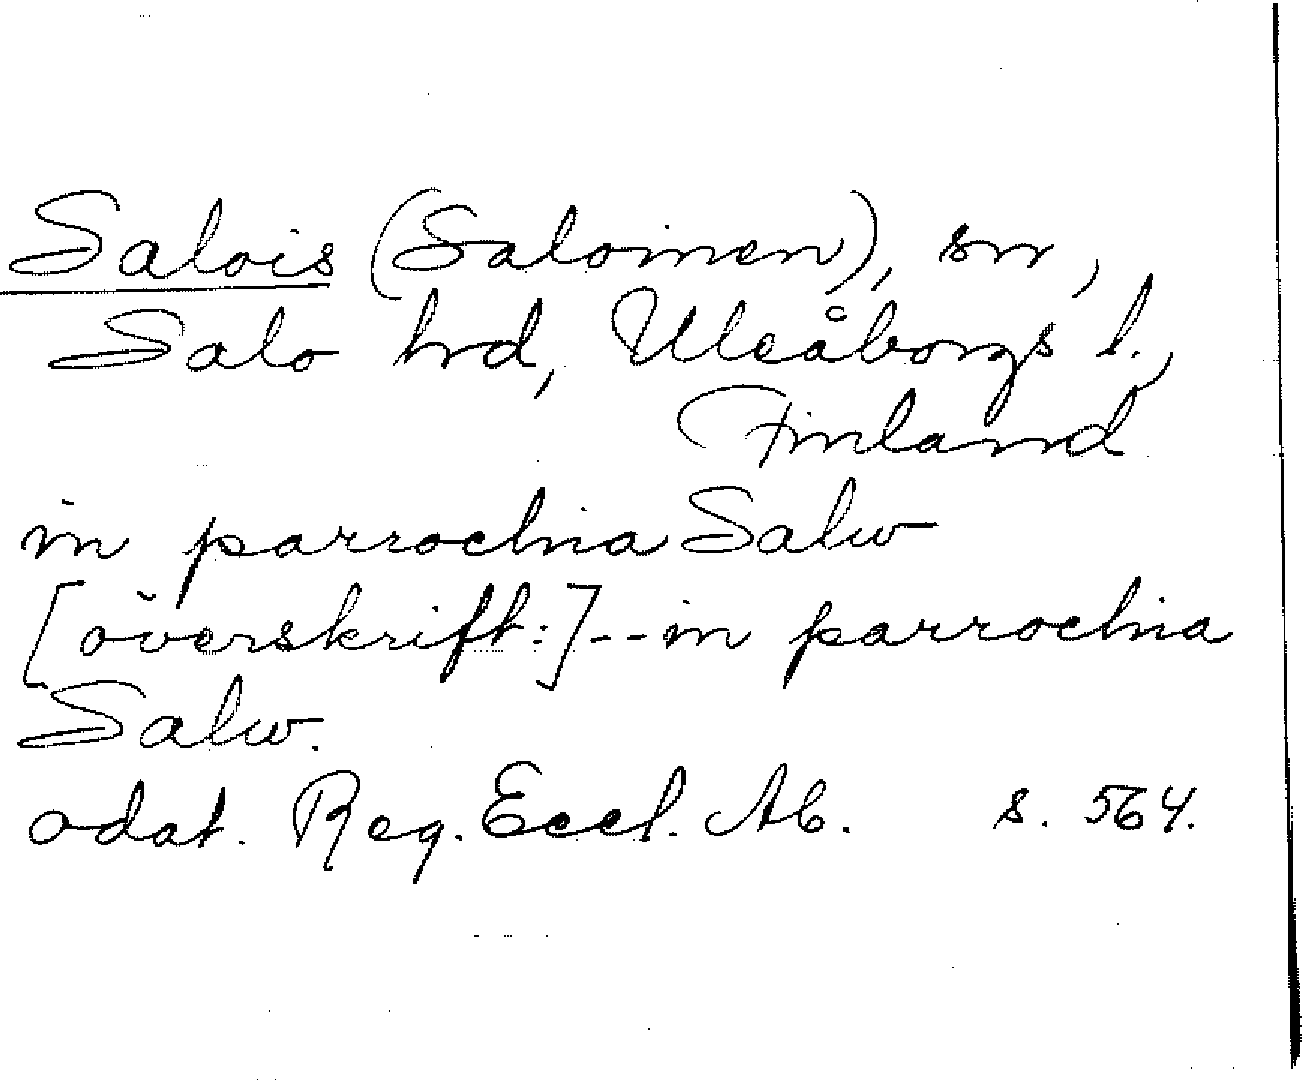 Salois (Saloinen), sn,
Salo hrd, Uleåborgs l.,
Finland
in parrochia Salw
[överskrift:]--in parrochia
Salw.
odat. Reg. Eccl. Ab. s. 564.